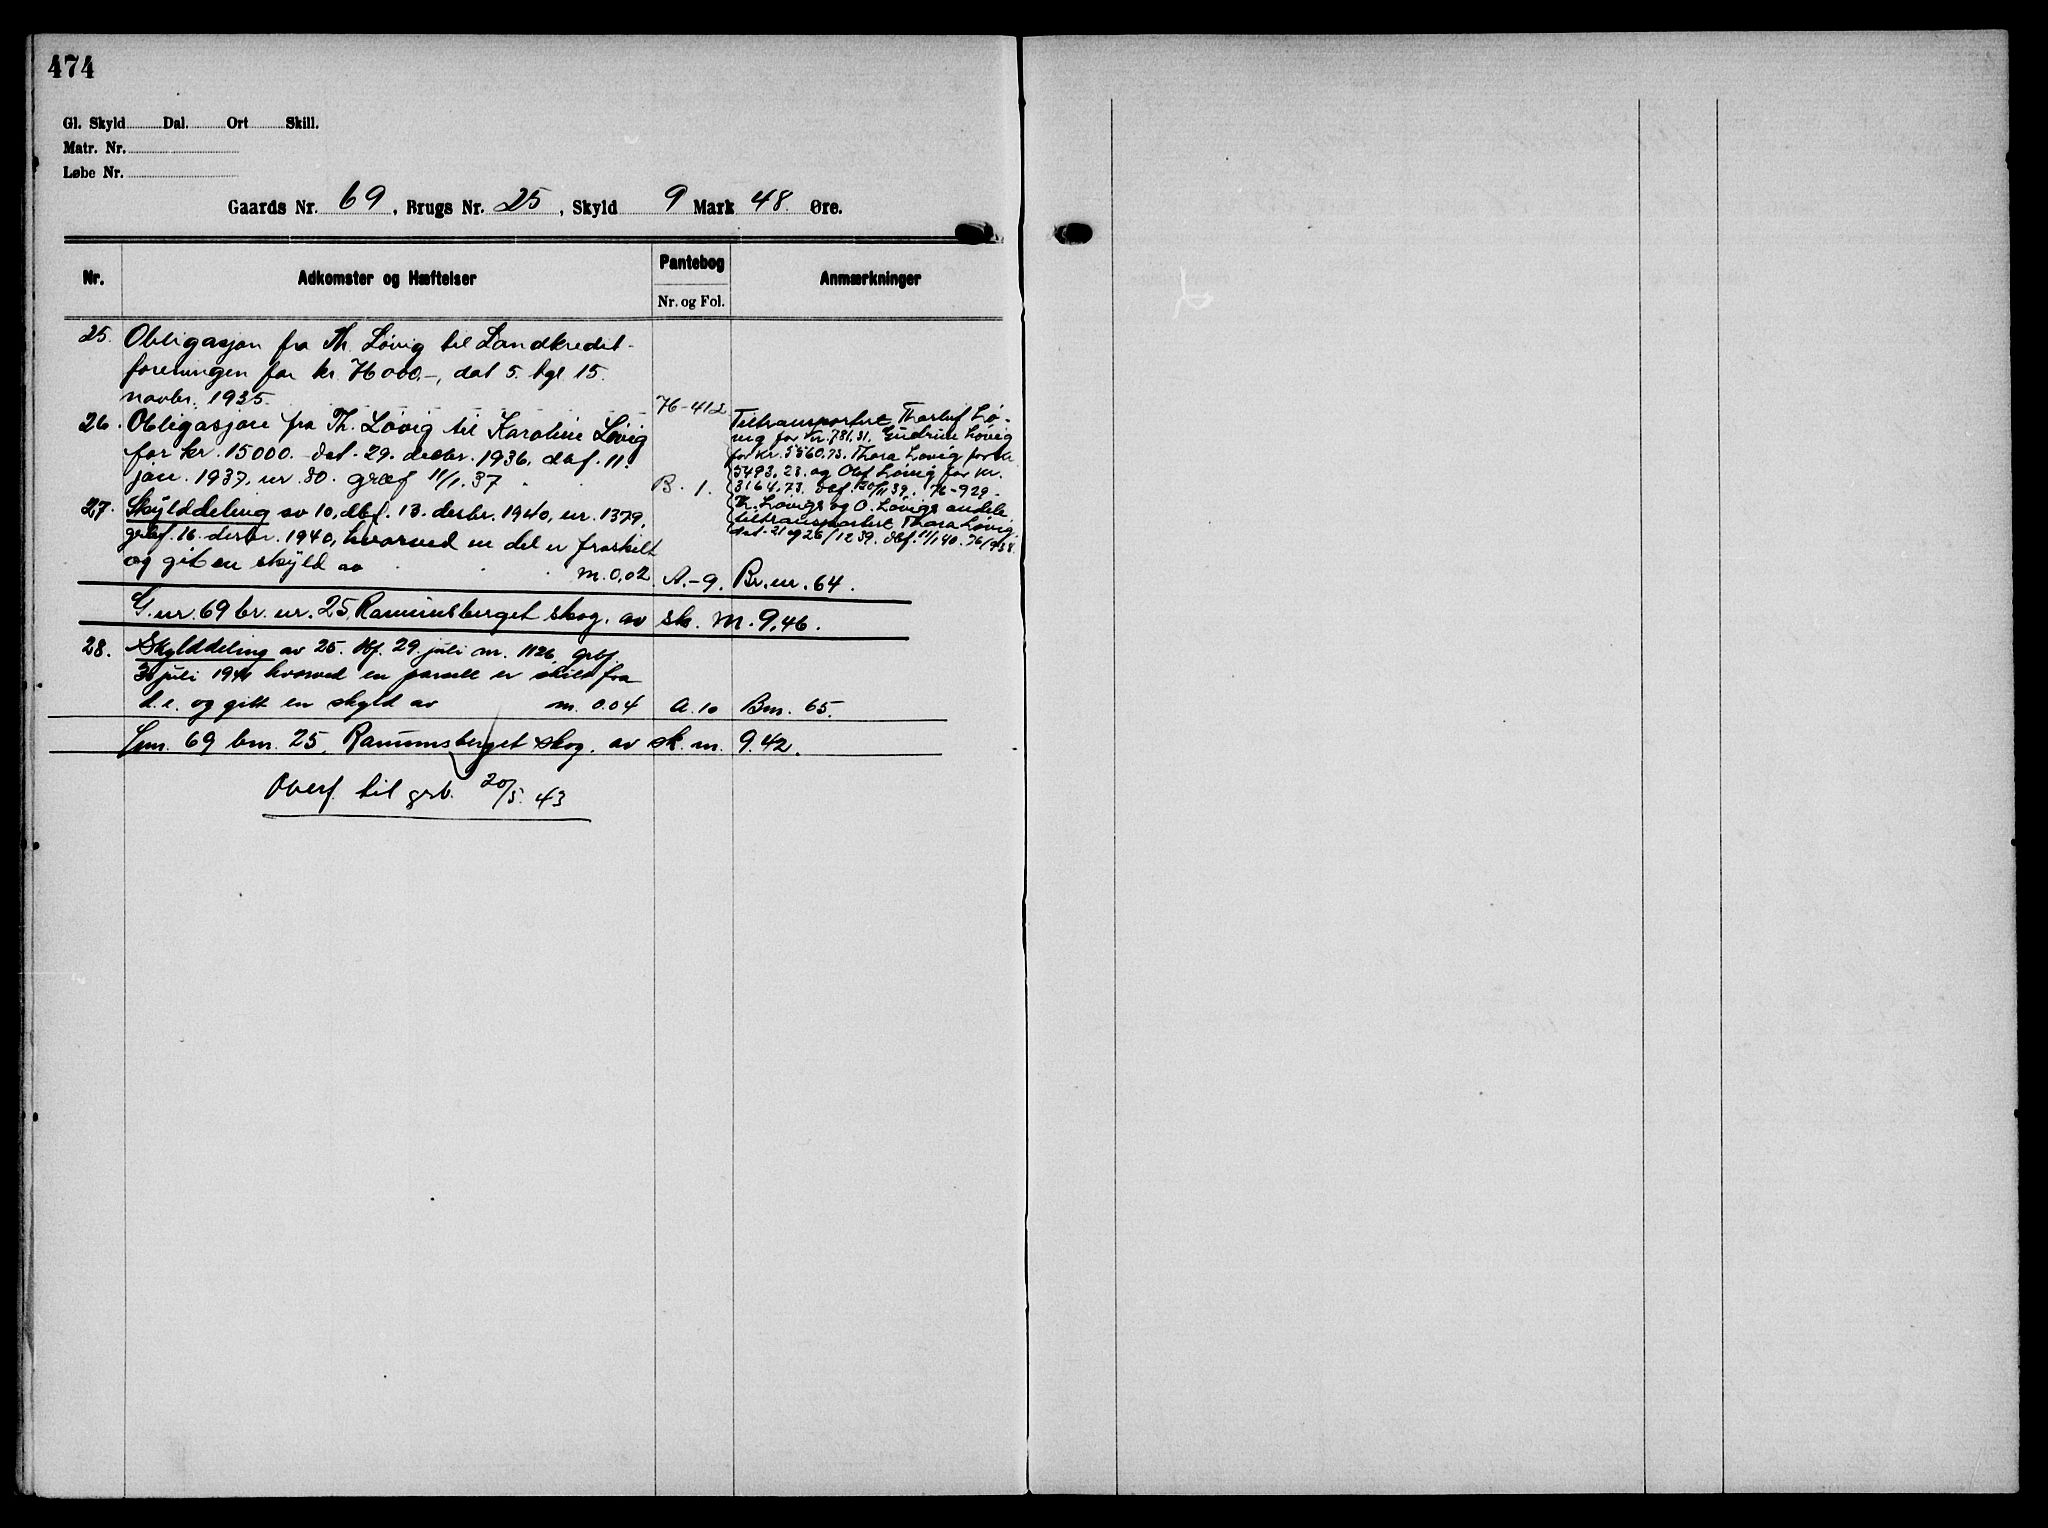 474
Gl. Skyld Dal. Ort Skill.
Matr. Nr.
Løbe Nr.
Gaards Nr. 69, Brugs Nr. 25, Skyld 9 Mark 48. Øre.
Nr. Adkomster og Hæftelser Pantebog Anmærkninger
Nr. og Fol.
25. Obligasjon fra Th. Løvig til Landkredit-
foreningen for kr. 76000.-, dat 5. tgl 15.
novbr. 1935. 76-412
26. Obligasjon fra Th. Løvig til Karoline Løvig
for kr. 15000.- dat. 29. desbr. 1936, dbf. 11.
jan. 1937. nr. 80. 11/1.37 B. 1.
Tiltransportert Thorluf Lø-
vig for kr. 781.31. Gudrun Løvig
for kr. 5560.73. Thora Løvig for kr.
5493.23. og Olof Løvig for kr.
3164.73. dbf. 20/11 39. 76-929-
Th. Løvigs og O. Løvigs andele
tiltransportert Thora Løvig
dat. 21 og 26/12 39. dbf. 11/1 40. 76/938.
27. Skylddeling av 10, dbf. 13. desbr. 1940, nr. 1379,
grbf. 16. desbr. 1940, hvorved en del er fraskilt
og git en skyld av m. 0,02 A.-9. Br. nr. 64.
G. nr. 69 br. nr. 25, Ramumsberget skog. av sk. m. 9,46.
28. Skylddeling av 25. dbf. 29. juli nr. 1126, grbf.
30 juli 1941 hvorved en parsell er skilt fra
d. e. og gitt en skyld av m. 0.04 A. 10 Bnr. 65.
Gnr. 69 bnr. 25, Ramumsberget skog. av sk. m. 9.42.
Overf. til grb. 20/5. 43